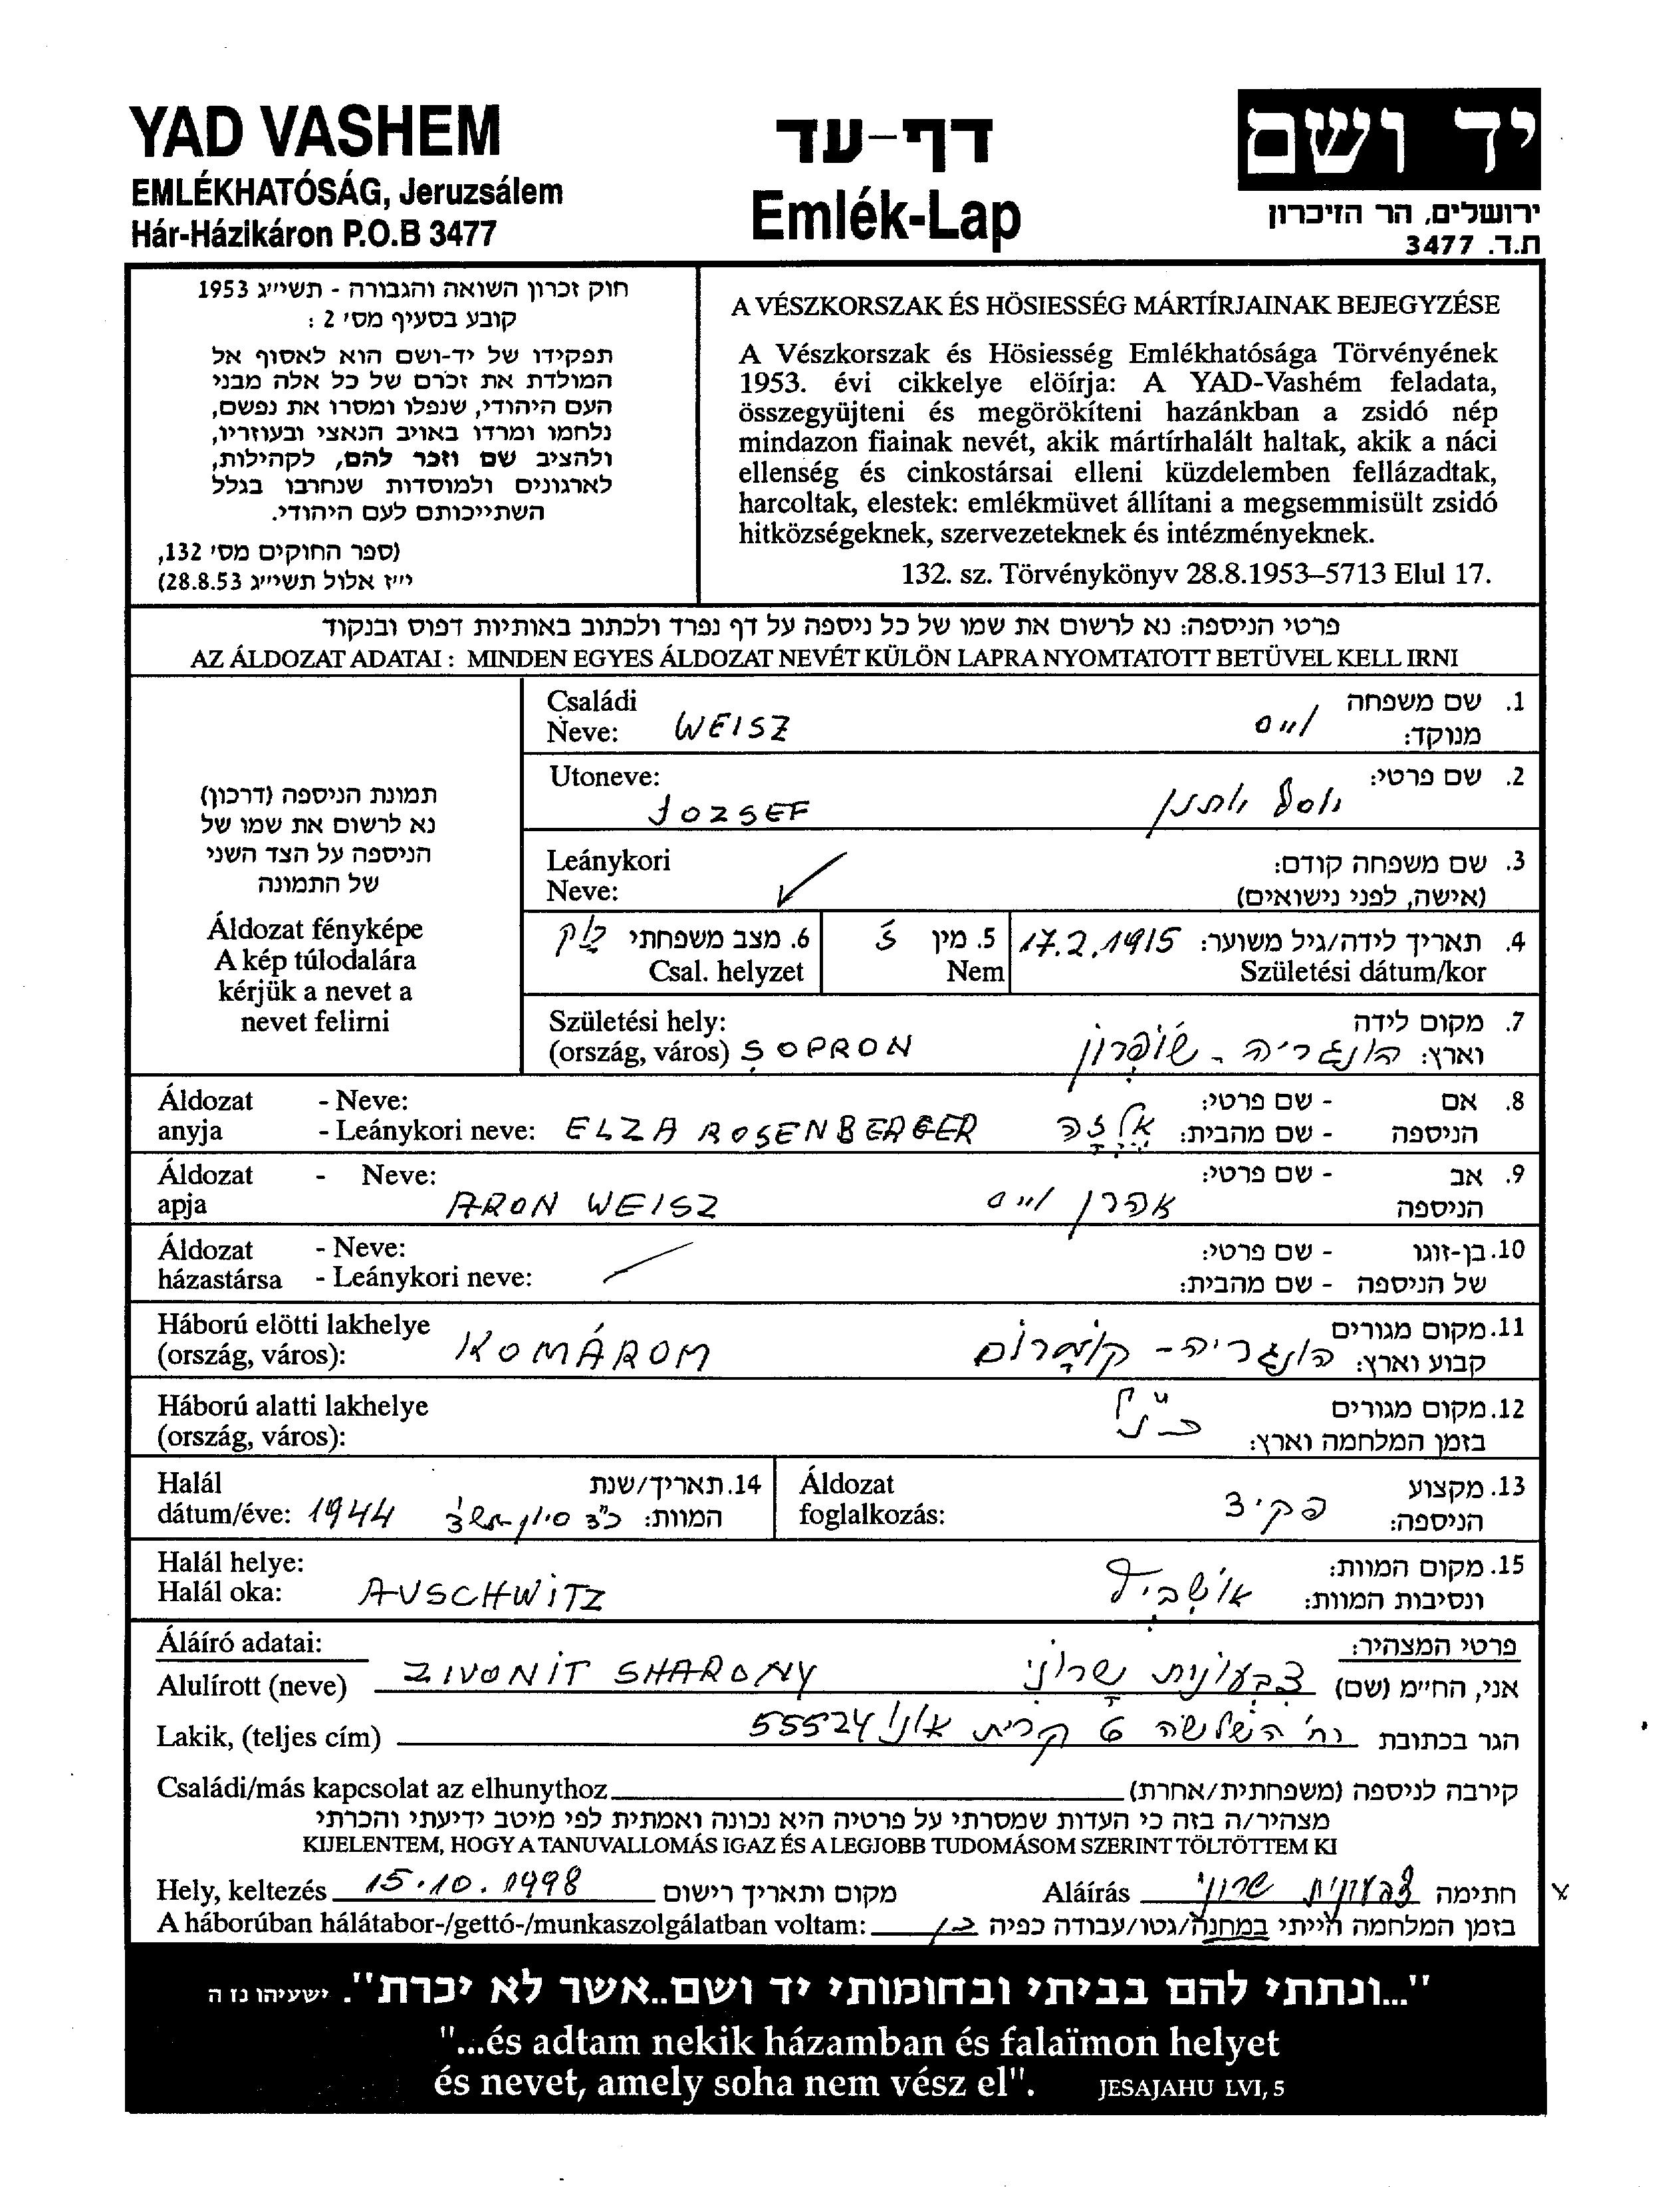 YAD VASHEM
EMLÉKHATÓSÁG, Jeruzsálem
Hár-Házikáron P.O.B 3477
דף-עד
Emlék-Lap
יד ושם
ירושלים, הר הזיכרון
ת.ד. 3477
חוק זכרון השואה והגבורה - תשי״ג 1953
קובע בסעיף מס׳ 2 :
תפקידו של יד-ושם הוא לאסוף אל
המולדת את זכרם של כל אלה מבני
העם היהודי, שנפלו ומסרו את נפשם,
נלחמו ומרדו באויב הנאצי ובעוזריו,
ולהציב שם וזכר להם, לקהילות,
לארגונים ולמוסדות שנחרבו בגלל
השתייכותם לעם היהודי.
(ספר החוקים מס׳ 132,
י״ז אלול תשי״ג 28.8.53)
A VÉSZKORSZAK ÉS HÖSIESSÉG MÁRTÍRJAINAK BEJEGYZÉSE
A Vészkorszak és Hösiesség Emlékhatósága Törvényének
1953. évi cikkelye elöírja: A YAD-Vashém feladata,
összegyüjteni és megörökíteni hazánkban a zsidó nép
mindazon fiainak nevét, akik mártírhalált haltak, akik a náci
ellenség és cinkostársai elleni küzdelemben fellázadtak,
harcoltak, elestek: emlékmüvet állítani a megsemmisült zsidó
hitközségeknek, szervezeteknek és intézményeknek.
132. sz. Törvénykönyv 28.8.1953–5713 Elul 17.
פרטי הניספה: נא לרשום את שמו של כל ניספה על דף נפרד ולכתוב באותיות דפוס ובנקוד
AZ ÁLDOZAT ADATAI : MINDEN EGYES ÁLDOZAT NEVÉT KÜLÖN LAPRA NYOMTATOTT BETÜVEL KELL IRNI
תמונת הניספה (דרכון)
נא לרשום את שמו של
הניספה על הצד השני
של התמונה
Áldozat fényképe
A kép túlodalára
kérjük a nevet a
nevet felirni
Családi
Neve: WEISZ
1. שם משפחה
מנוקד: וייס
Utoneve:
JOZSEF
2. שם פרטי:
יוסף נתן
Leánykori
Neve:
3. שם משפחה קודם:
(אישה, לפני נישואים)
4. תאריך לידה/גיל משוער: 17.2.1915
Születési dátum/kor
5. מין ז
Nem
6. מצב משפחתי רווק
Csal. helyzet
Születési hely:
(ország, város) SOPRON
7. מקום לידה
וארץ: הונגריה - שופרון
Áldozat - Neve:
anyja - Leánykori neve: ELZA ROSENBERGER
8. אם - שם פרטי:
הניספה - שם מהבית: אלזה
Áldozat - Neve:
apja ARON WEISZ
9. אב - שם פרטי:
הניספה אהרן וייס
Áldozat - Neve:
házastársa - Leánykori neve:
10. בן-זוגו - שם פרטי:
של הניספה - שם מהבית:
Háború elötti lakhelye
(ország, város): KOMÁROM
11. מקום מגורים
קבוע וארץ: הונגריה - קומרום
Háború alatti lakhelye
(ország, város):
12. מקום מגורים
בזמן המלחמה וארץ: כנ״ל
Halál
dátum/éve: 1944
14. תאריך/שנת
המוות: כ״ג סיון
Áldozat
foglalkozás:
13. מקצוע
הניספה: פקיד
Halál helye:
Halál oka: AUSCHWITZ
15. מקום המוות:
ונסיבות המוות: אושביץ
Áláíró adatai:
פרטי המצהיר:
Alulírott (neve) ZIVONIT SHARONY
אני, החי״מ (שם) צבעונית שרוני
Lakik, (teljes cím)
הגר בכתובת רח׳ השלשה 6 קרית אונו 55524
Családi/más kapcsolat az elhunythoz
קירבה לניספה (משפחתית/אחרת)
מצהיר/ה בזה כי העדות שמסרתי על פרטיה היא נכונה ואמתית לפי מיטב ידיעתי והכרתי
KIJELENTEM, HOGY A TANUVALLOMÁS IGAZ ÉS A LEGJOBB TUDOMÁSOM SZERINT TÖLTÖTTEM KI
Hely, keltezés 15.10.1998 מקום ותאריך רישום
Aláírás צבעונית שרוני חתימה x
A háborúban hálátabor-/gettó-/munkaszolgálatban voltam:
בזמן המלחמה הייתי במחנה/גטו/עבודה כפיה
"...ונתתי להם בביתי ובחומותי יד ושם..אשר לא יכרת". ישעיהו נז ה
"...és adtam nekik házamban és falaïmon helyet
és nevet, amely soha nem vész el". JESAJAHU LVI, 5